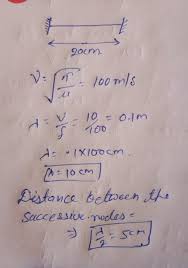 20cm
V = √(T/μ) = 100 m/s
λ = V/f = 10/100 = 0.1m
λ = .1X100cm.
λ = 10cm
Distance between the
successive nodes =
⇒ λ/2 = 5cm